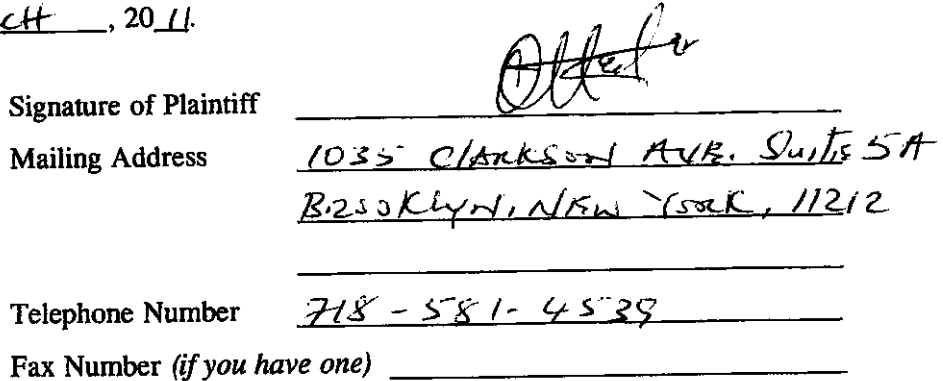 cH, 2011.
Signature of Plaintiff
Mailing Address 1035 Clarkson Ave. Suite 5A
Brooklyn, New York, 11212
Telephone Number 718-581-4539
Fax Number (if you have one)